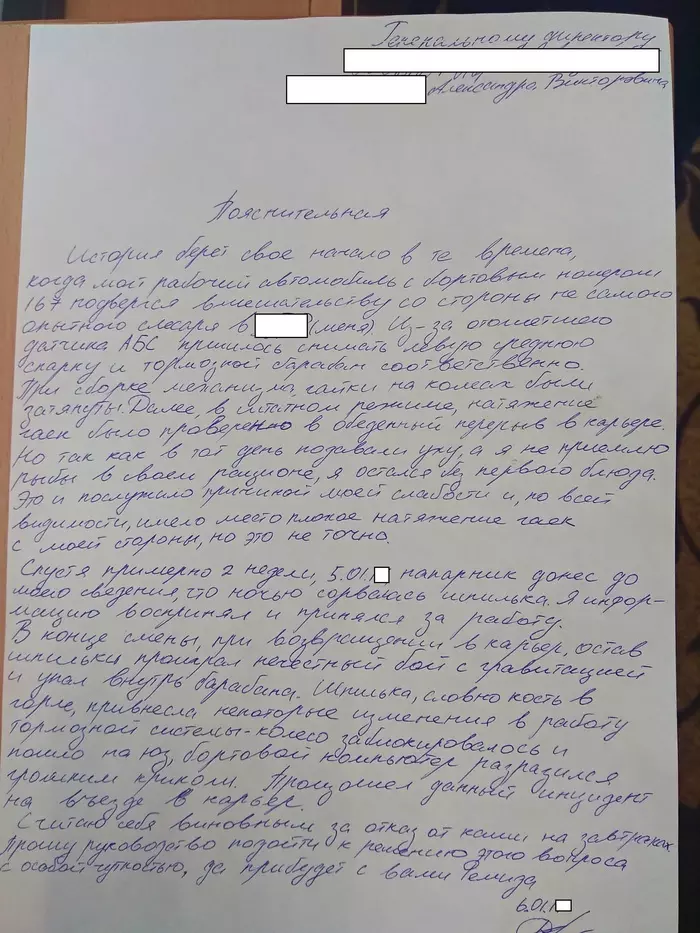 Генеральному директору
Александра Викторовича
Пояснительная
История берет свое начало в те времена,
когда мой рабочий автомобиль с бортовым номером
167 подвергся вмешательству со стороны не самого
опытного слесаря в (меня) Из-за отошетшего
датчика АБС пришлось снимать левую среднюю
спарку и тормозной барабан соответственно.
При сборке механизма, гайки на колесах были
затянуты. Далее, в штатном режиме, натяжение
гаек было проверенно в обеденный перерыв в карьере.
Но так как в тот день подавали уху, а я не приемлю
рыбы в своем рационе, я остался без первого блюда.
Это и послужило причиной моей слабости и, по всей
видимости, имело место плохое натяжение гаек
с моей стороны, но это не точно.
Спустя примерно 2 недели, 5.01. напарник донес до
моего сведения, что ночью сорвалась шпилька. Я инфор-
мацию воспринял и принялся за работу.
В конце смены, при возвращении в карьер, остав
шпильки проиграл нечестный бой с гравитацией
и упал внутрь барабана. Шпилька, словно кость в
горле, привнесла некоторые изменения в работу
тормозной системы-колесо заблокировалось и
пошло на юз, бортовой компьютер разразился
громким криком. Произошел данный инцидент
на въезде в карьер.
Считаю себя виновным за отказ от каши на завтраках
Прошу руководство подойти к решению этого вопроса
с особой чуткостью, да прибудет с вами Фемида
6.01.1